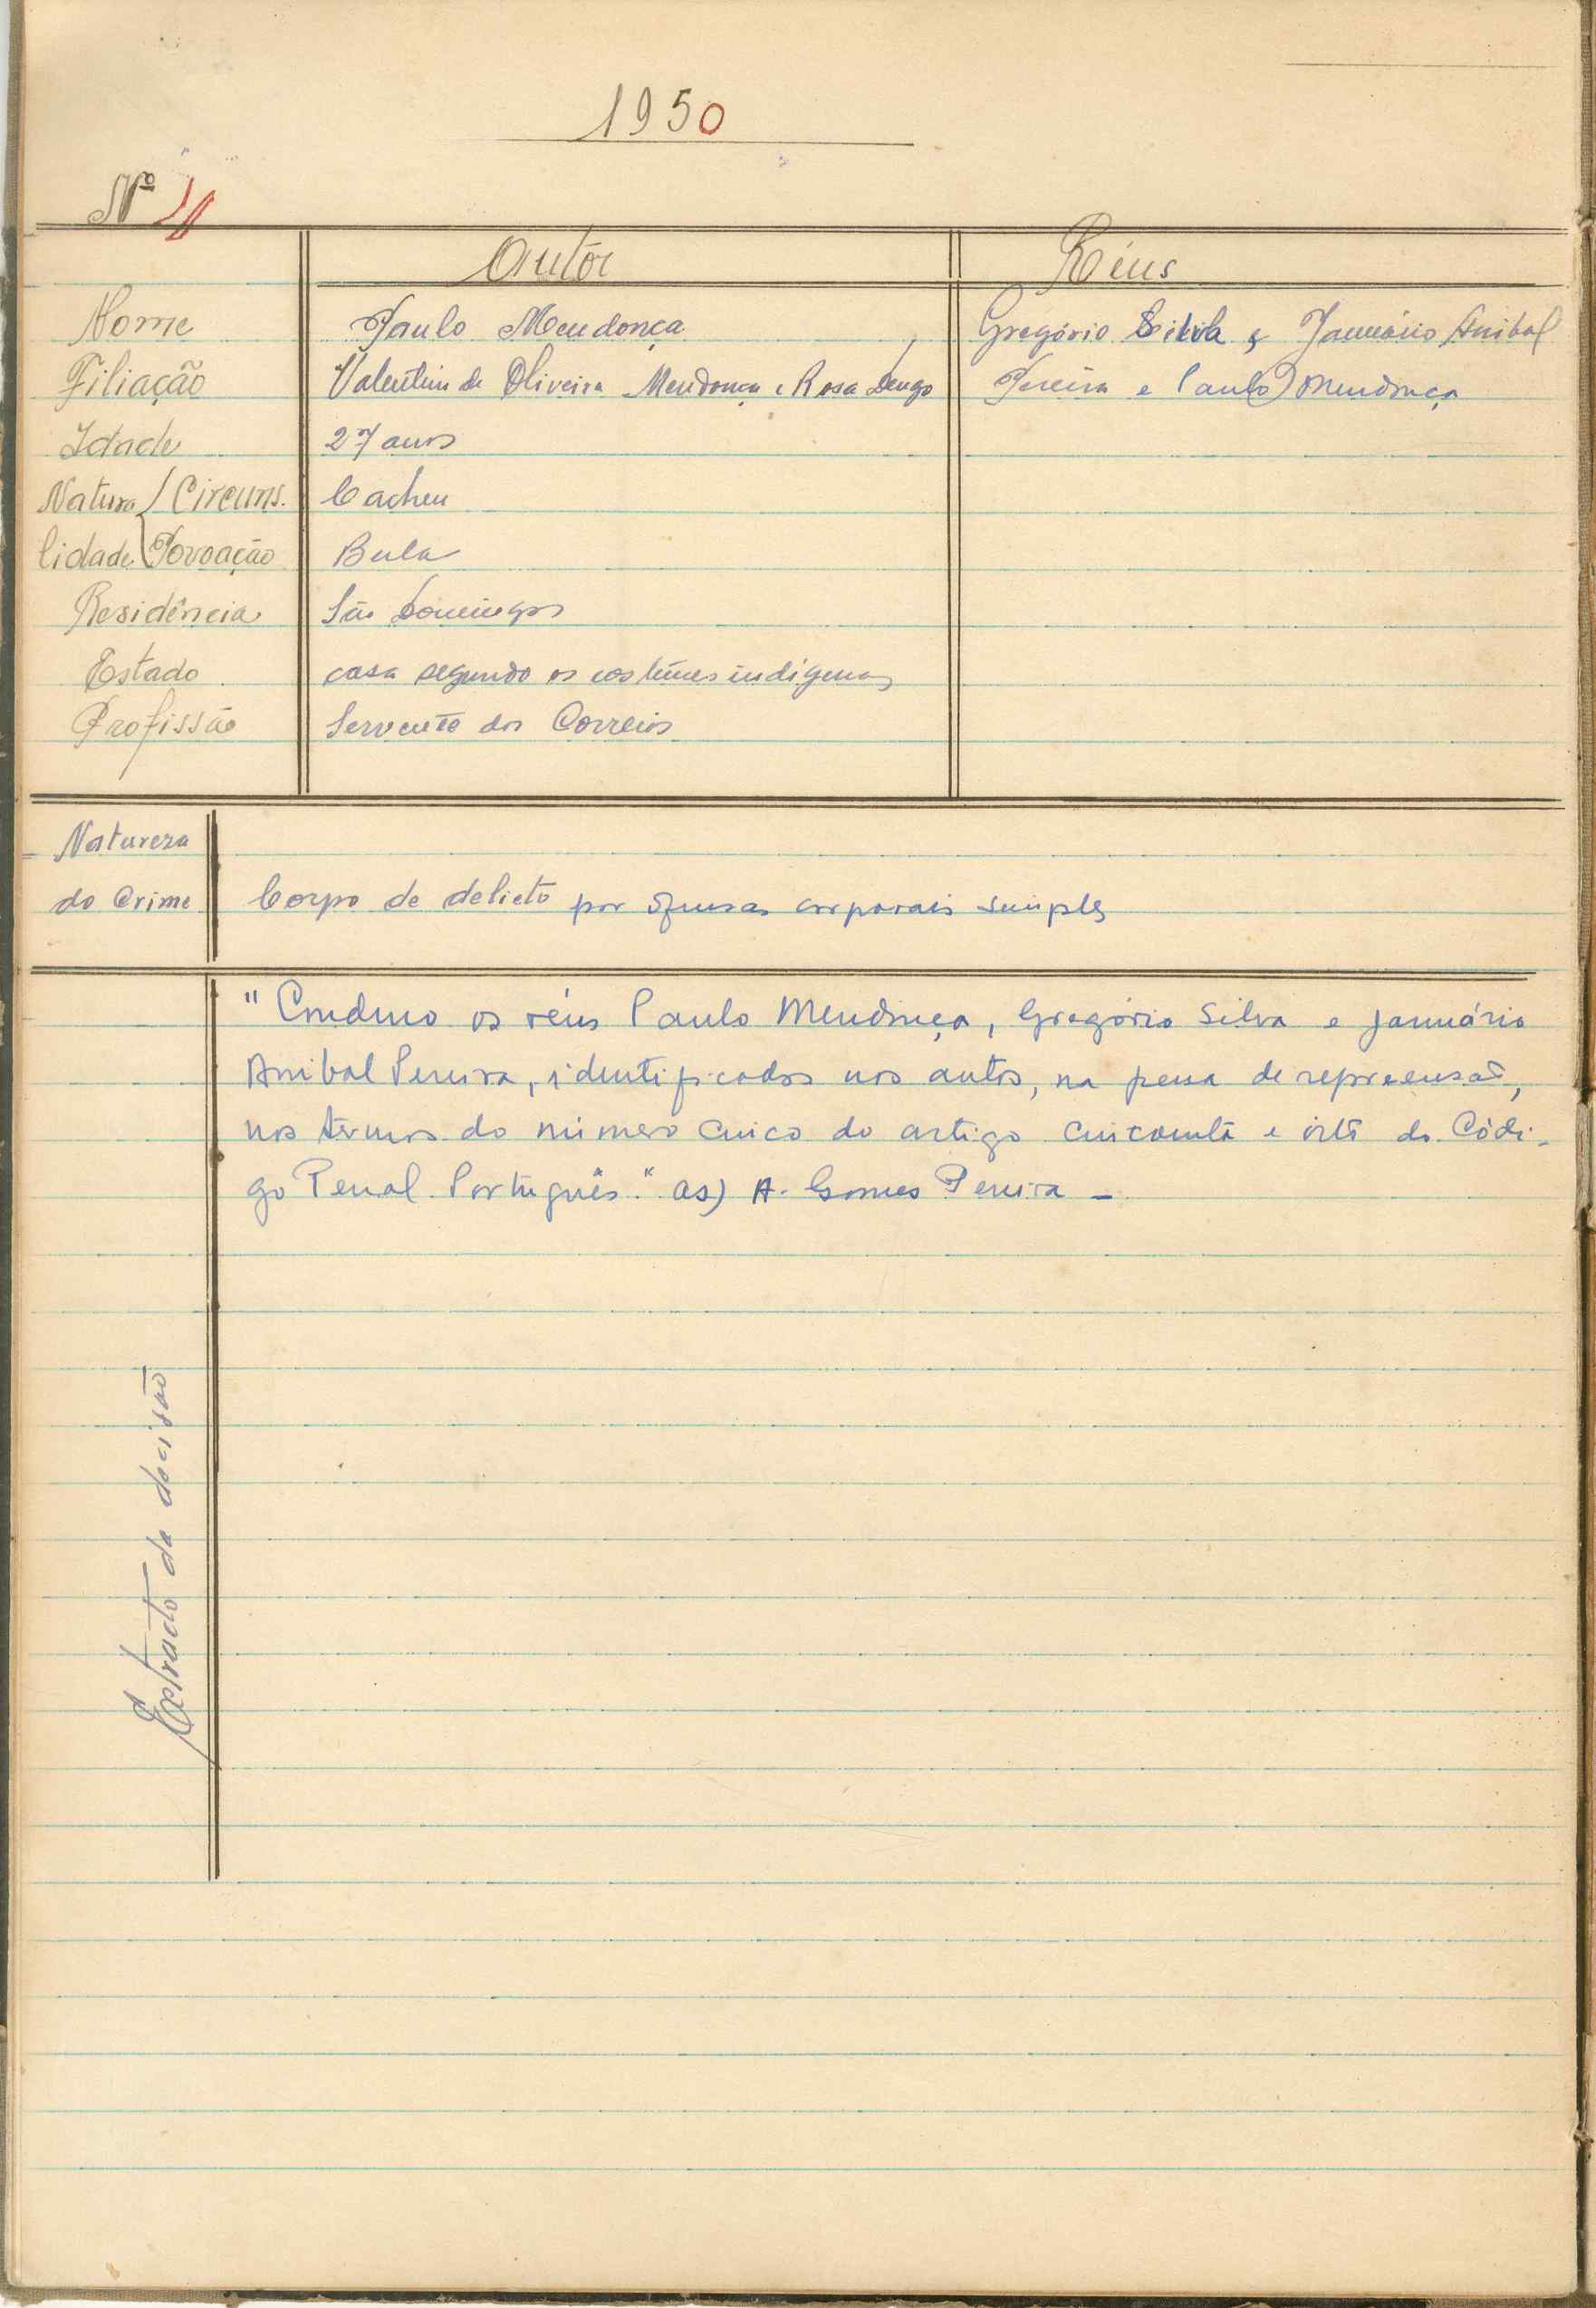 1950
Nº
Autôr Réus
Nome Paulo Mendonça Gregório Silva e Januário Anibal
Filiação Valentim de Oliveira Mendonça e Rosa Dengo Pereira e Paulo Mendonça
Idade 27 anos
Natura Circuns. Cacheu
lidade Povoação Bula
Residência São Domingos
Estado casa segundo os costumes indígenas
Profissão Servente dos Correios
Natureza
do Crime Corpo de delicto por ofensas corporais simples
"Condeno os réus Paulo Mendonça, Gregório Silva e Januário
Anibal Pereira, identificados nos autos, na pena de repreensão,
nos termos do número cinco do artigo cincoenta e oito do Códi-
go Penal Português." as) A. Gomes Pereira -
Extrato da decisão